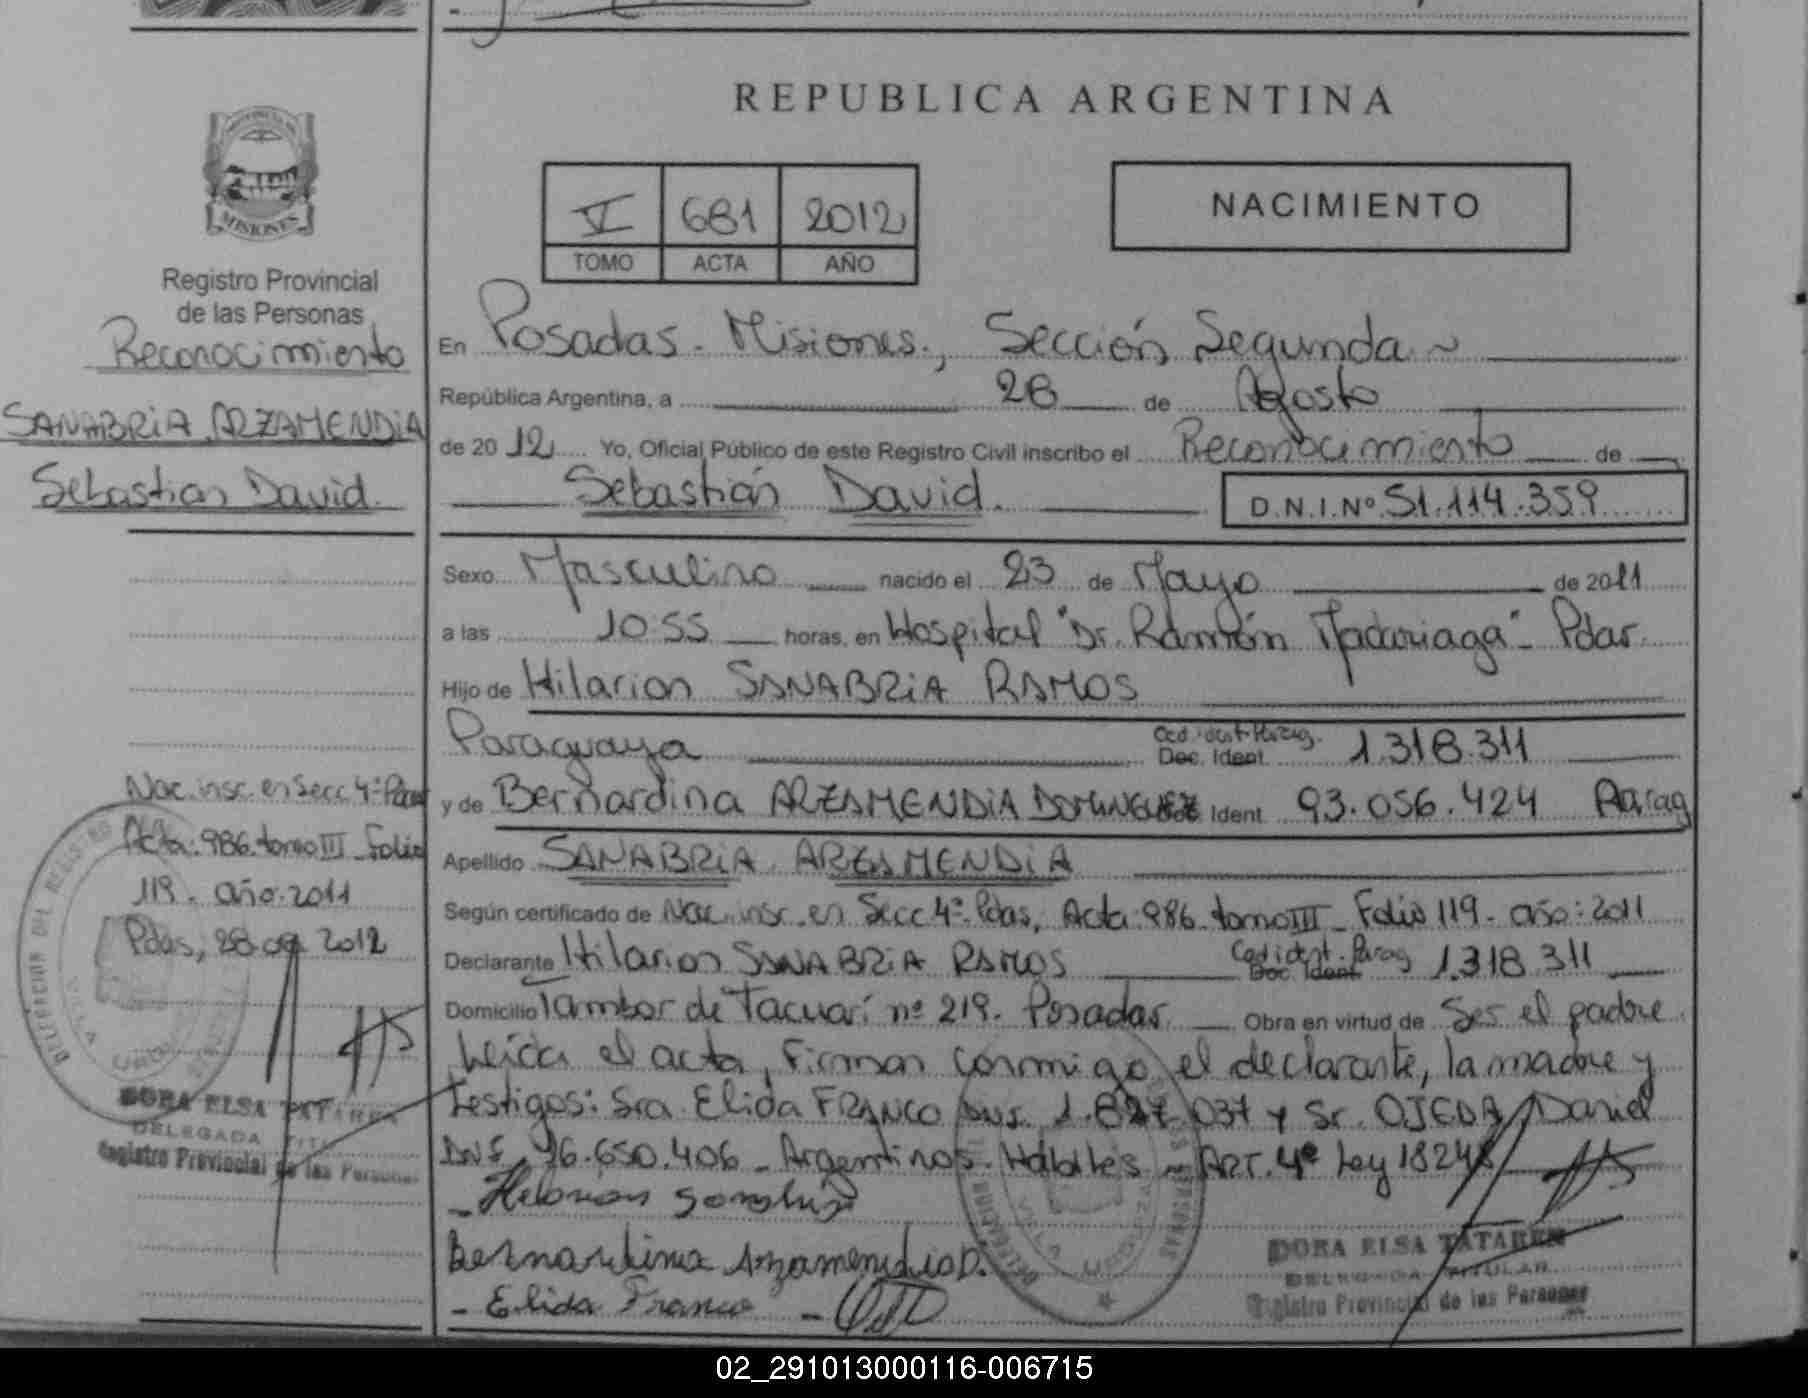 REPUBLICA ARGENTINA
V 681 2012
TOMO ACTA AÑO
NACIMIENTO
PROVINCIA DE
MISIONES
Registro Provincial
de las Personas
Reconocimiento
SANABRIA ARZAMENDIA
Sebastian David.
En Posadas. Misiones., Sección Segunda ~
República Argentina, a 28 de Agosto
de 2012 Yo, Oficial Público de este Registro Civil inscribo el Reconocimiento de
Sebastián David. D.N.I.Nº 51.114.359
Sexo Masculino nacido el 23 de Mayo de 2011
a las 10:55 horas, en Hospital "Dr. Ramón Madariaga"- Pdas.
Hijo de Hilarion SANABRIA RAMOS
Paraguaya Ced. ident. Parag. Doc. Ident. 1.318.311
y de Bernardina ARZAMENDIA DOMINGUEZ Doc. Ident. 93.056.424 Parag
Apellido SANABRIA ARZAMENDIA
Según certificado de Nac. insc. en Secc 4ª Pdas, Acta: 986. tomo III - Folio 119 - año: 2011
Declarante Hilarion SANABRIA RAMOS Ced ident. Parag Doc. Ident 1.318.311
Domicilio Tambor de Tacuarí nº 219. Posadas. Obra en virtud de Ser el padre.
Leída el acta, firman conmigo el declarante, la madre y
testigos: Sra. Elida FRANCO DNI. 1.827.037 y Sr. OJEDA, Daniel
DNI. 26.650.406 - Argentinos. Hábiles - ART. 4º Ley 18248
Bernardina Arzamendia D.
- Elida Franco
Nac. insc. en Secc 4ª Pdas
Acta: 986. tomo III - Folio
119 - año. 2011
Pdas, 28.08 2012
DORA ELSA TATAREN
DELEGADA TITULAR
Registro Provincial de las Personas
DORA ELSA TATAREN
DELEGADA TITULAR
Registro Provincial de las Personas
DELEGACION DEL REGISTRO
VILLA URQUIZA
DELEGACION
VILLA URQUIZA
02_291013000116-006715